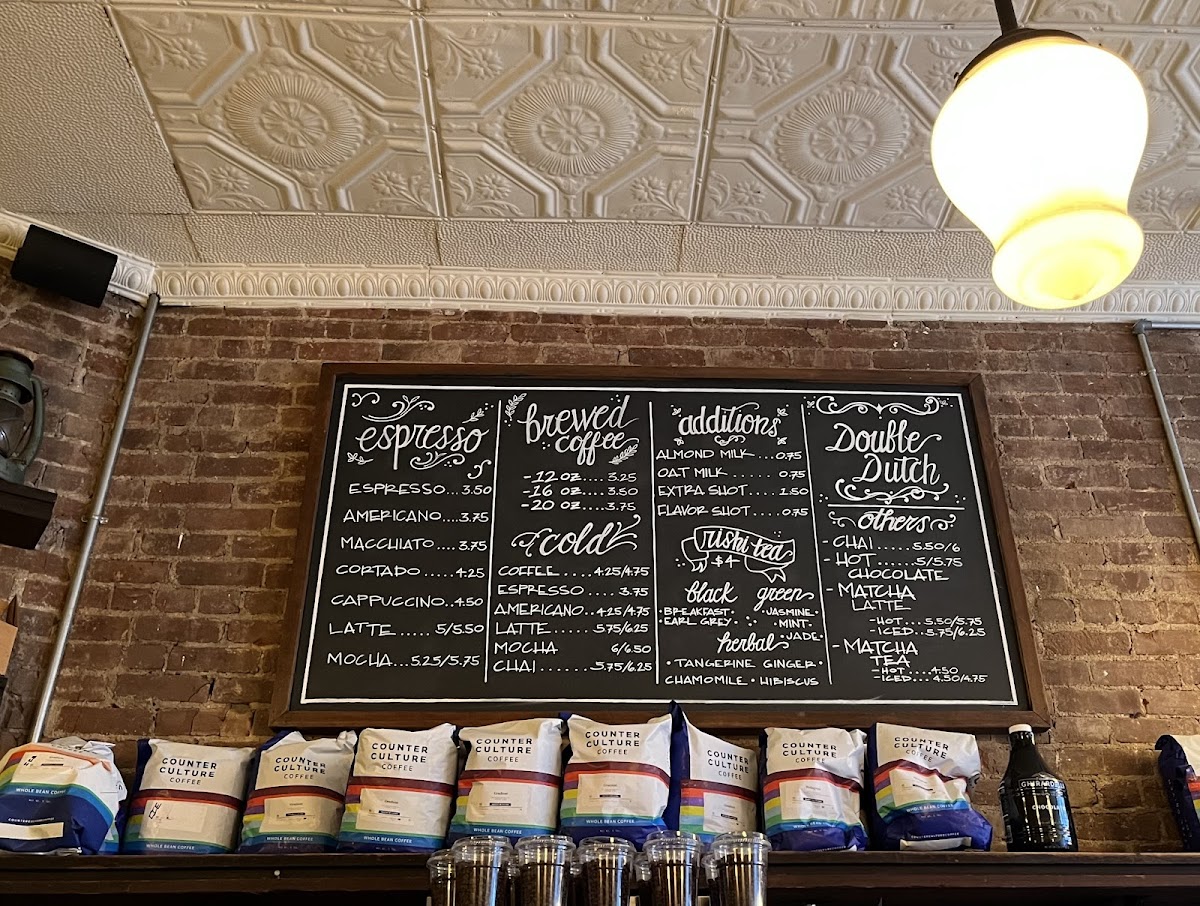 espresso
ESPRESSO...3.50
AMERICANO....3.75
MACCHIATO....3.75
CORTADO.....4.25
CAPPUCCINO..4.50
LATTE.....5/5.50
MOCHA...5.25/5.75
brewed
coffee
-12 OZ....3.25
-16 OZ....3.50
-20 OZ....3.75
cold
COFFEE....4.25/4.75
ESPRESSO....3.75
AMERICANO..4.25/4.75
LATTE......5.75/6.25
MOCHA 6/6.50
CHAI......5.75/6.25
additions
ALMOND MILK...0.75
OAT MILK....0.75
EXTRA SHOT....1.50
FLAVOR SHOT....0.75
rishi tea
$4
black green
BREAKFAST• •JASMINE•
•EARL GREY• •MINT•
•JADE•
herbal
•TANGERINE GINGER•
CHAMOMILE • HIBISCUS
Double
Dutch
others
- CHAI.....5.50/6
- HOT......5/5.75
CHOCOLATE
- MATCHA
LATTE
-HOT....5.50/5.75
-ICED..5.75/6.25
- MATCHA
TEA
-HOT....4.50
-ICED...4.50/4.75
WHOLE BEAN COFFEE
COUNTER
CULTURE
COFFEE
WHOLE BEAN COFFEE
COUNTER
CULTURE
COFFEE
WHOLE BEAN COFFEE
COUNTER
CULTURE
COFFEE
WHOLE BEAN COFFEE
COUNTER
CULTURE
COFFEE
WHOLE BEAN COFFEE
COUNTER
CULTURE
COFFEE
WHOLE BEAN COFFEE
COUNTER
CULTURE
COFFEE
COUNTER
CULTURE
COFFEE
WHOLE BEAN COFFEE
COUNTER
CULTURE
COFFEE
GHIRARDELLI
CHOCOLATE